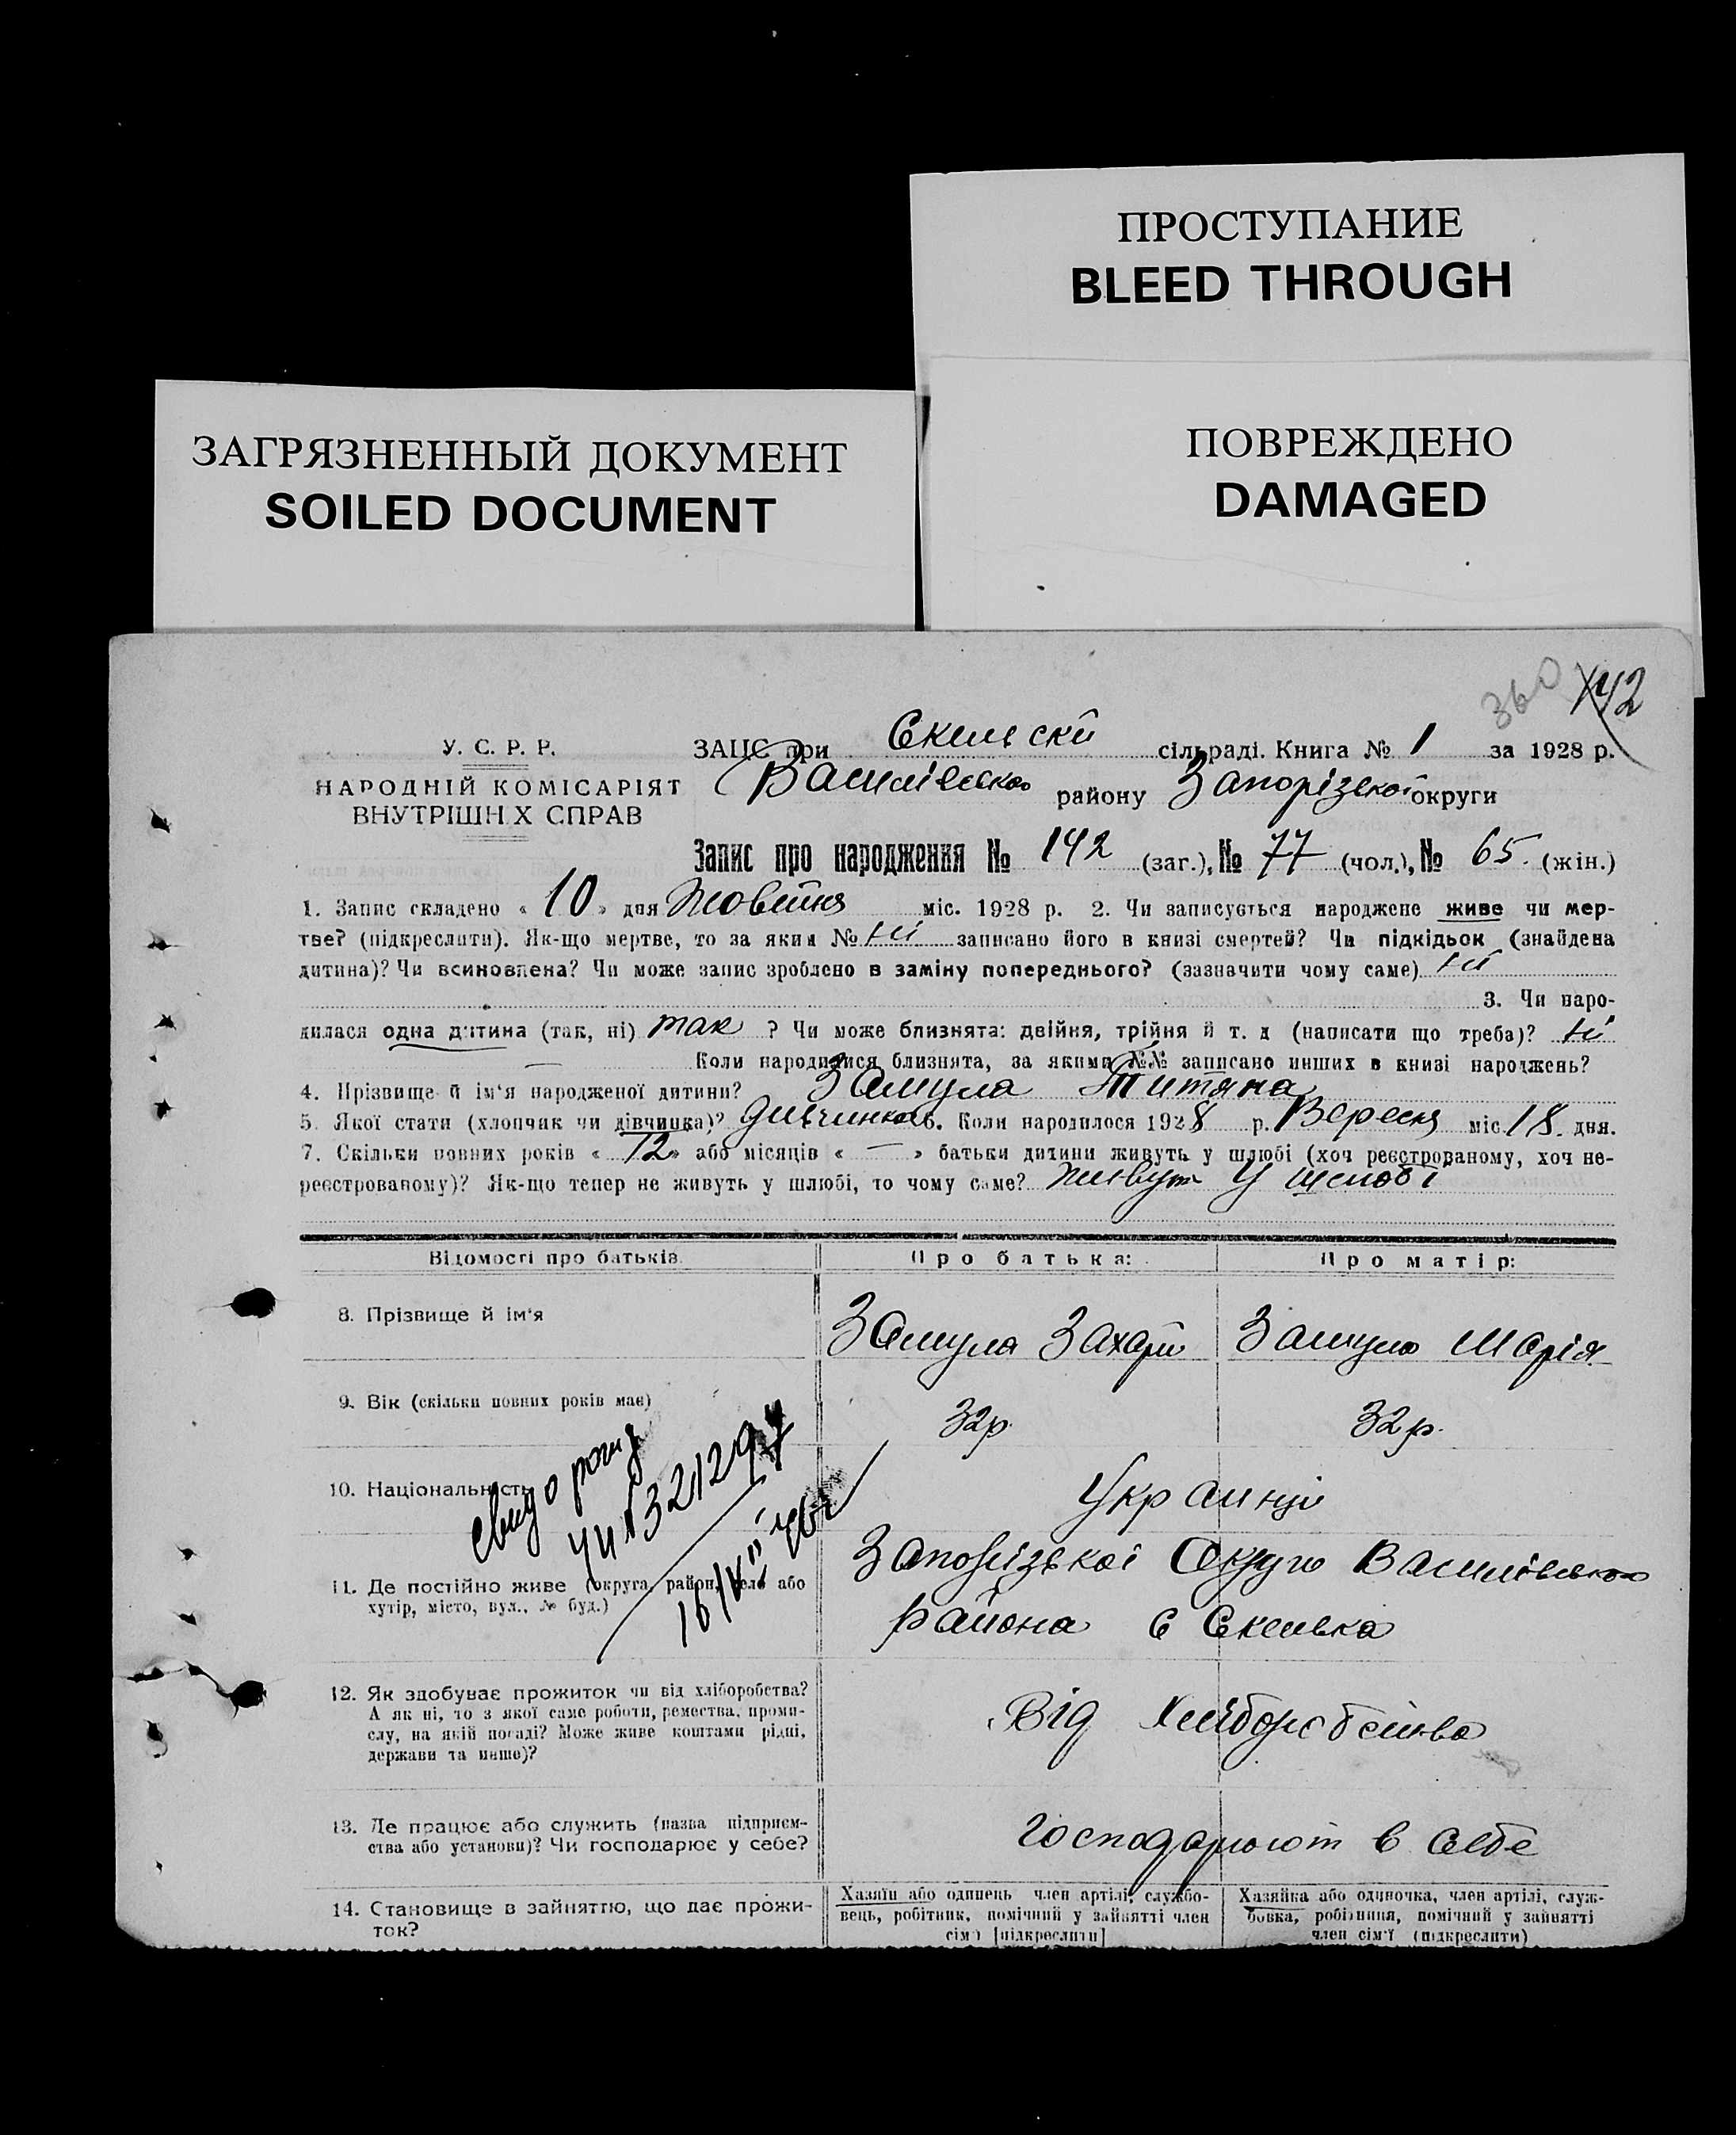 ПРОСТУПАНИЕ
BLEED THROUGH
ЗАГРЯЗНЕННЫЙ ДОКУМЕНТ
SOILED DOCUMENT
ПОВРЕЖДЕНО
DAMAGED
360 142
У. С. Р. Р.
НАРОДНІЙ КОМІСАРІЯТ
ВНУТРІШНІХ СПРАВ
ЗАЦС при Скельскій сільраді. Книга № 1 за 1928 р.
Василівського району Запорізької округи
Запис про народження № 142 (заг.), № 77 (чол.), № 65. (жін.)
1. Запис складено « 10 » дня Жовтня міс. 1928 р. 2. Чи записується народжене живе чи мер-
тве? (підкреслити). Як-що мертве, то за яким № ні записано його в книзі смертей? Чи підкідьок (знайдена
дитина)? Чи всиновлена? Чи може запис зроблено в заміну попереднього? (зазначити чому саме) ні
3. Чи наро-
дилася одна дитина (так, ні) так ? Чи може близнята: двійня, трійня й т. д (написати що треба)? ні
Коли народилися близнята, за якими №№ записано инших в книзі народжень?
4. Прізвище й ім'я народженої дитини? Замула Титяна
5. Якої стати (хлопчик чи дівчинка)? Дивчинка 6. Коли народилося 1928 р. Вересня міс. 18. дня.
7. Скільки повних років « 12 » або місяців « — » батьки дитини живуть у шлюбі (хоч реєстрованому, хоч не-
реєстрованому)? Як-що тепер не живуть у шлюбі, то чому саме? живут у шлюбі
Відомості про батьків. Про батька: Про матір:
8. Прізвище й ім'я Замула Захарій Замула Марія
9. Вік (скільки повних років має) 32 р. 32 р.
10. Національність Українці
11. Де постійно живе (округа, район, село або
хутір, місто, вул., № буд.)
Запорізької Округи Василівського
района с Скелька
12. Як здобуває прожиток чи від хліборобства?
А як ні, то з якої саме роботи, ремества, проми-
слу, на якій посаді? Може живе коштами рідні,
держави та инше)?
Від Хліборобства
13. Де працює або служить (назва підприєм-
ства або установи)? Чи господарює у себе?
Господарюют в себе
14. Становище в зайняттю, що дає прожи-
ток?
Хазяїн або одинець член артілі, службо-
вець, робітник, помічний у зайнятті член
сім'ї [підкреслити]
Хазяйка або одиночка, член артілі, служ-
бовка, робітниця, помічний у зайнятті
член сім'ї (підкреслити)